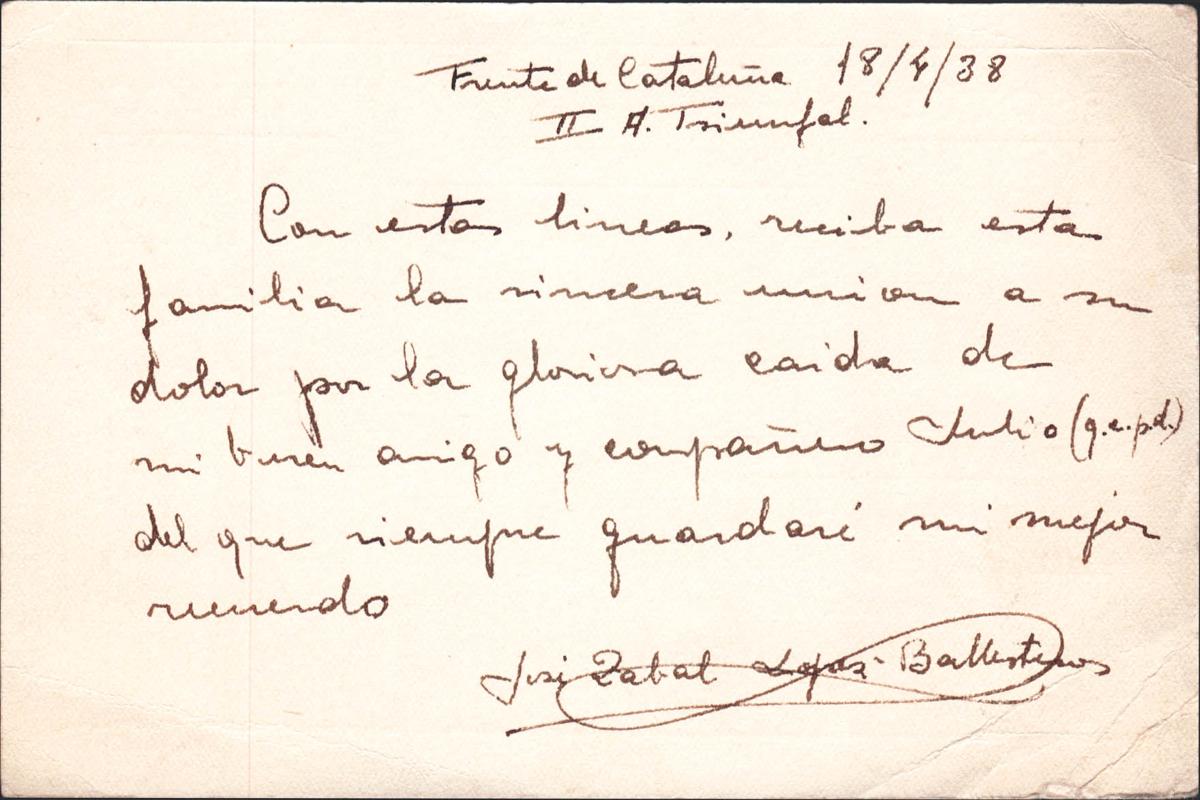 Frente de Cataluña 18/4/38
II A. Triunfal.
Con estas lineas, reciba esta
familia la sincera union a su
dolor por la gloriosa caida de
mi buen amigo y compañero Julio (q.e.p.d.)
del que siempre guardaré mi mejor
recuerdo
José Zabal López-Ballesteros